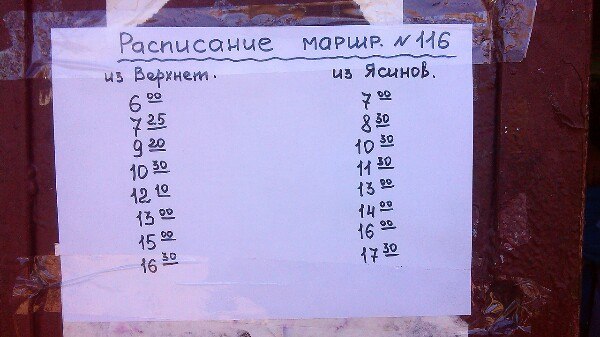 Расписание маршр. № 116
из Верхнет. из Ясинов.
6 00 7 00
7 25 8 30
9 20 10 30
10 30 11 30
12 10 13 00
13 00 14 00
15 00 16 00
16 30 17 30